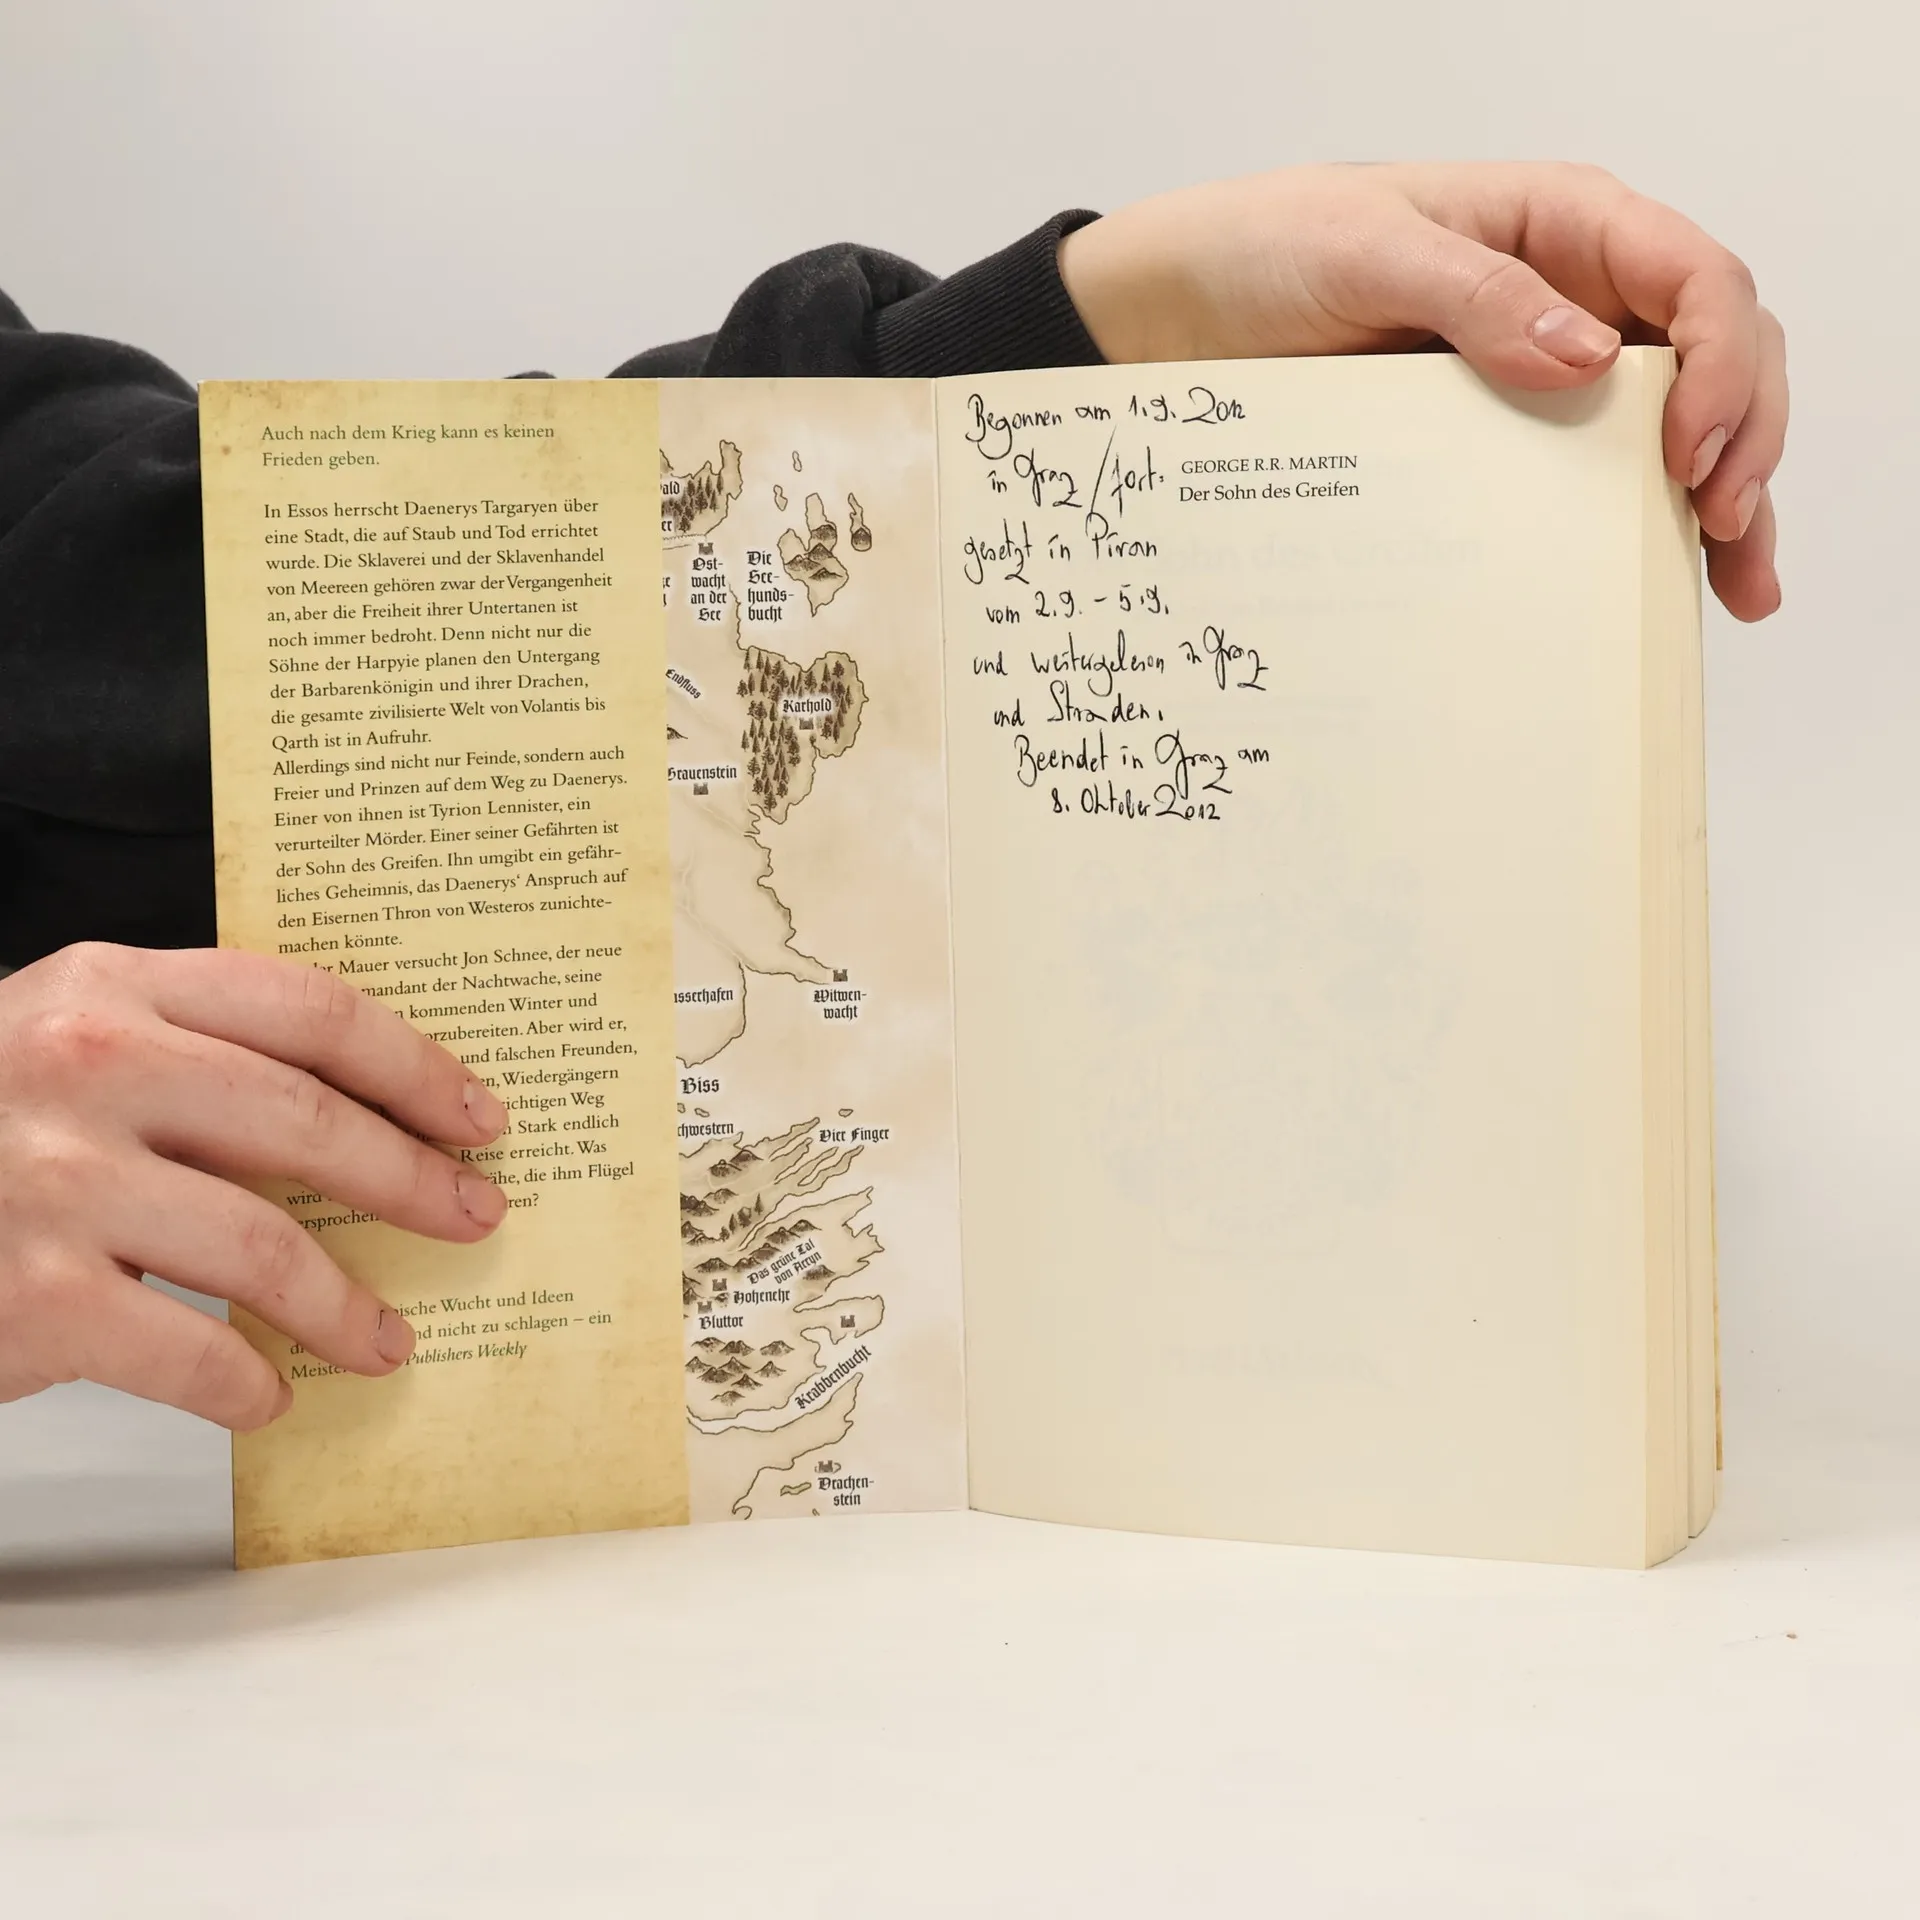 Auch nach dem Krieg kann es keinen
Frieden geben.
In Essos herrscht Daenerys Targaryen über
eine Stadt, die auf Staub und Tod errichtet
wurde. Die Sklaverei und der Sklavenhandel
von Meereen gehören zwar der Vergangenheit
an, aber die Freiheit ihrer Untertanen ist
noch immer bedroht. Denn nicht nur die
Söhne der Harpyie planen den Untergang
der Barbarenkönigin und ihrer Drachen,
die gesamte zivilisierte Welt von Volantis bis
Qarth ist in Aufruhr.
Allerdings sind nicht nur Feinde, sondern auch
Freier und Prinzen auf dem Weg zu Daenerys.
Einer von ihnen ist Tyrion Lennister, ein
verurteilter Mörder. Einer seiner Gefährten ist
der Sohn des Greifen. Ihn umgibt ein gefähr-
liches Geheimnis, das Daenerys' Anspruch auf
den Eisernen Thron von Westeros zunichte-
machen könnte.
Mauer versucht Jon Schnee, der neue
mandant der Nachtwache, seine
kommenden Winter und
orzubereiten. Aber wird er,
und falschen Freunden,
en, Wiedergängern
ichtigen Weg
Stark endlich
Reise erreicht. Was
wird ähe, die ihm Flügel
ersprochen ren?
ische Wucht und Ideen
nd nicht zu schlagen – ein
Meiste Publishers Weekly
ald
er
Ost-
wacht
an der
See
Die
See-
hunds-
bucht
Endfluss
Karhold
Grauenstein
sserhafen
Witwen-
wacht
Biss
chwestern
Vier Finger
Das grüne Tal
von Arryn
Hohenehr
Bluttor
Krabbenbucht
Drachen-
stein
Begonnen am 1.9. 2012
in Graz / fort-
gesetzt in Piran
vom 2.9. - 5.9.
und weitergelesen in Graz
und Straden.
Beendet in Graz am
8. Oktober 2012
GEORGE R.R. MARTIN
Der Sohn des Greifen